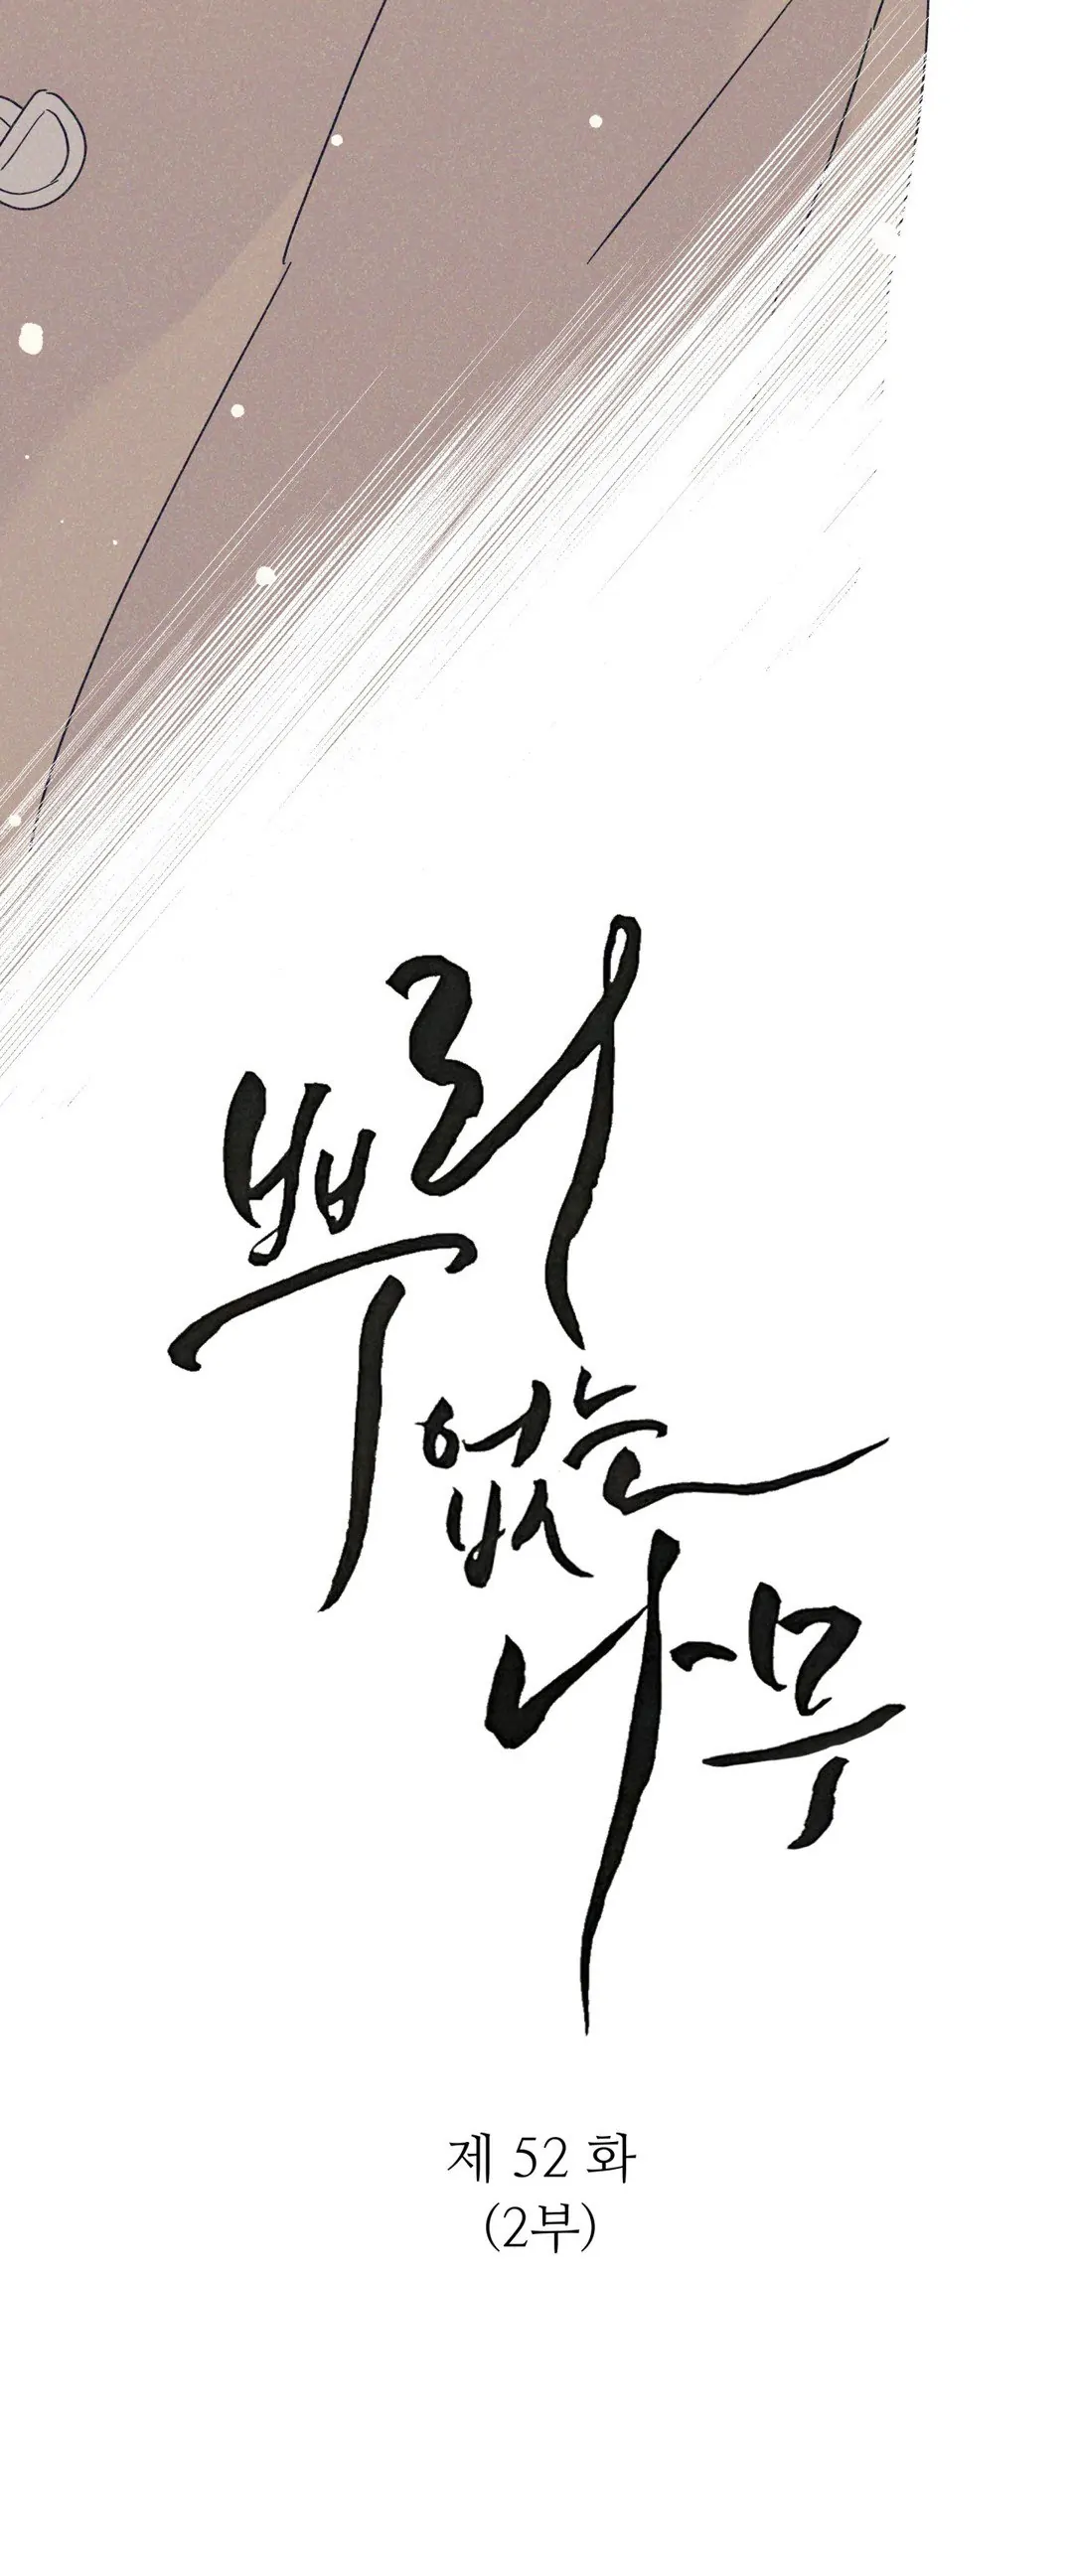 뿌리
없는
나무
제 52 화
(2부)